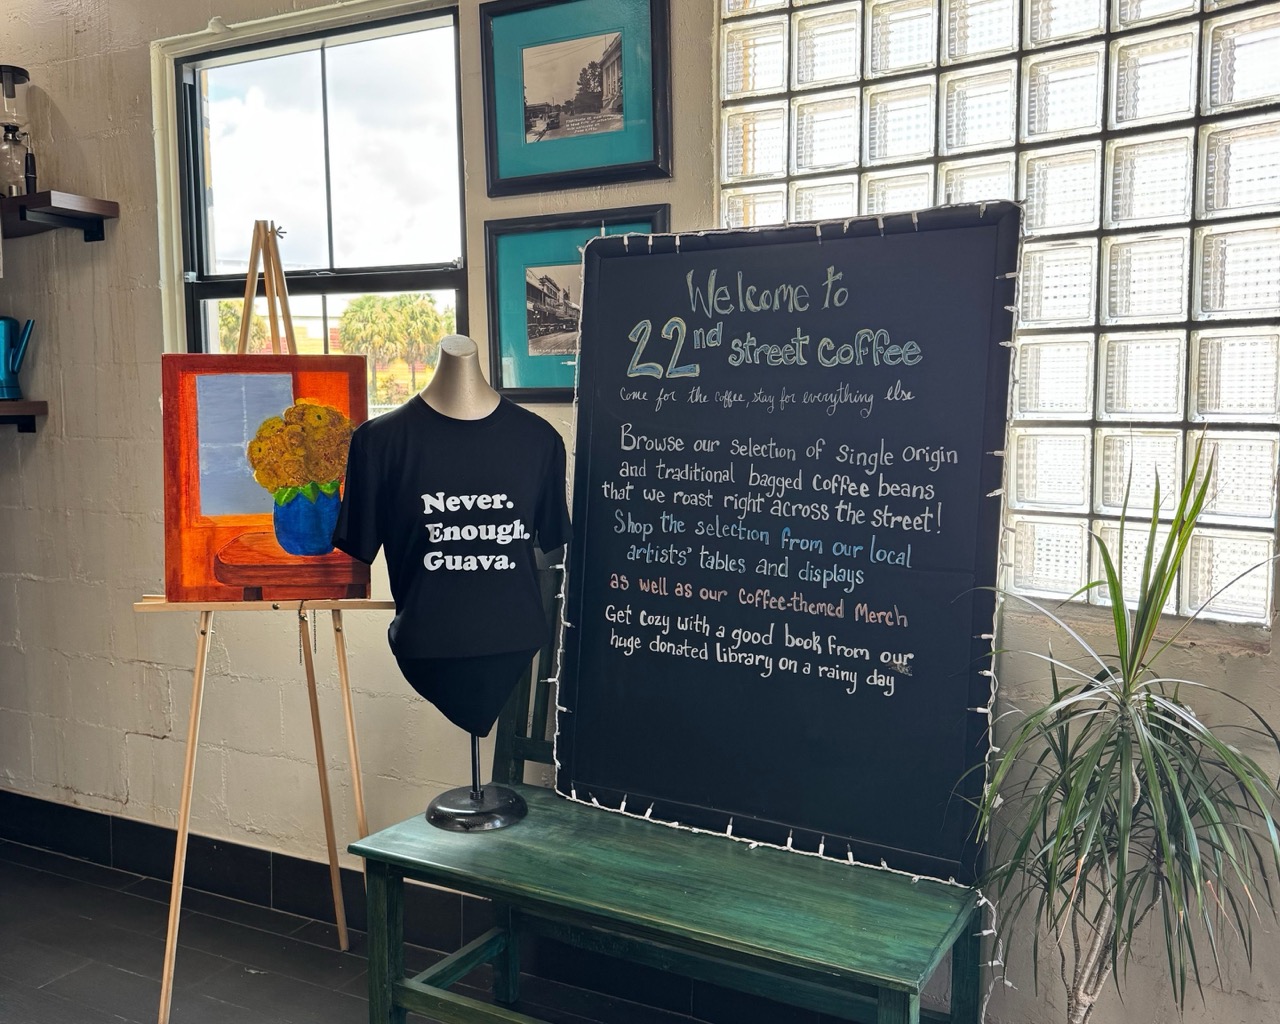 Welcome to
22nd street coffee
come for the coffee, stay for everything else
Browse our selection of single origin
and traditional bagged coffee beans
that we roast right across the street!
Shop the selection from our local
artists' tables and displays
as well as our coffee-themed Merch
Get cozy with a good book from our
huge donated library on a rainy day
Never.
Enough.
Guava.